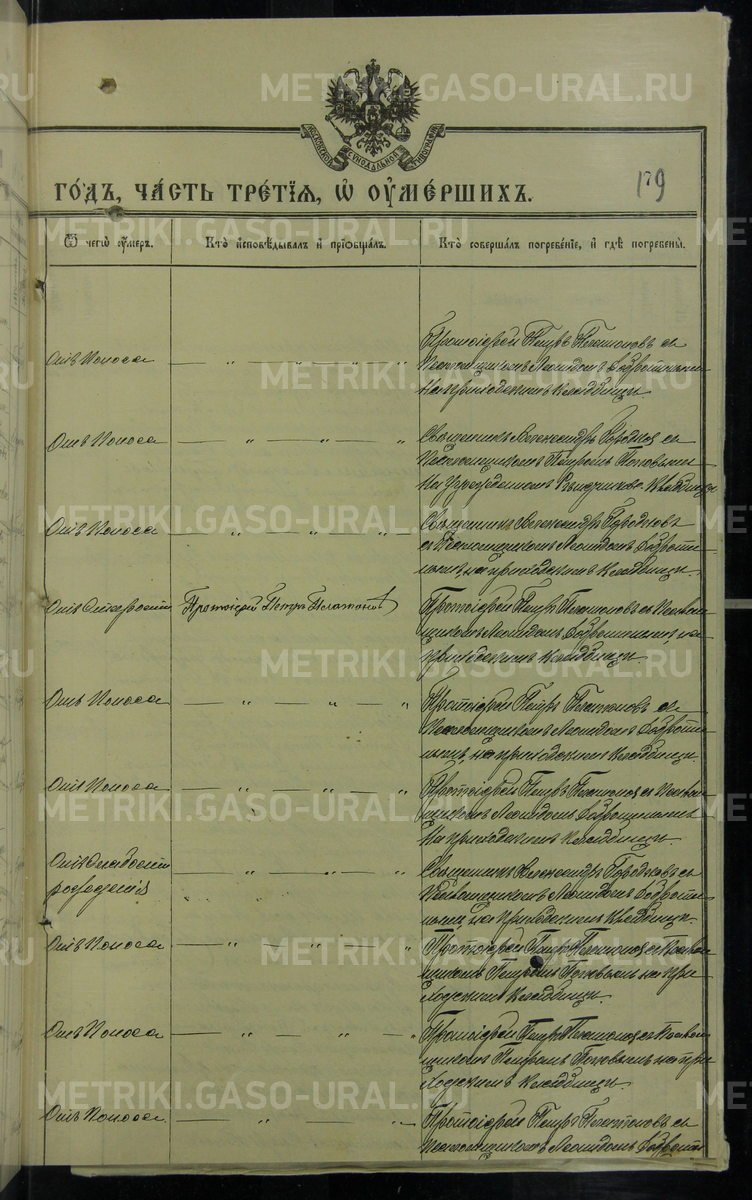 METRIKI.GASO-URAL.RU
МОСКОВСКОЙ СѴНОДАЛЬНОЙ ТИПОГРАФІИ
ГО́ДЪ, ЧА́СТЬ ТРЕ́ТІЯ, Ѡ ОУМЕ́РШИХЪ.
179
Ѿ чегѡ̀ ᲂу҆́меръ.
Кто̀ и҆сповѣ́дывалъ и҆ прїѡбща́лъ.
Кто̀ соверша́лъ погребе́нїе, и҆ гдѣ̀ погребены̀.
Отъ Поноса — „ — „ — „
Протоіерей Петръ Платоновъ съ
Псаломщикомъ Леонидомъ
На приходскомъ Кладбищѣ.
Отъ Поноса — „ — „ — „
Священникъ Александръ Городковъ съ
Псаломщикомъ Петромъ Поповымъ
На Кладбищѣ
Отъ Поноса — „ — „ — „
Священникъ Александръ Городковъ
съ Псаломщикомъ Леонидомъ
на приходскомъ Кладбищѣ.
Отъ Старости
Протоіерей Петръ Платоновъ
Протоіерей Петръ Платоновъ съ Псалом-
щикомъ Леонидомъ на
приходскомъ Кладбищѣ.
Отъ Поноса — „ — „ — „
Протоіерей Петръ Платоновъ съ
Псаломщикомъ Леонидомъ
на приходскомъ Кладбищѣ.
Отъ Поноса — „ — „ — „
Протоіерей Петръ Платоновъ съ Псалом-
щикомъ Леонидомъ
На приходскомъ Кладбищѣ.
Отъ Слабости
рожденія — „ — „ — „
Священникъ Александръ Городковъ съ
Псаломщикомъ Леонидомъ
на Приходскомъ Кладбищѣ.
Отъ Поноса — „ — „ — „
Протоіерей Петръ Платоновъ съ Псалом-
щикомъ Петромъ Поповымъ на при-
ходскомъ Кладбищѣ.
Отъ Поноса — „ — „ — „
Протоіерей Петръ Платоновъ съ Псалом-
щикомъ Петромъ Поповымъ на при-
ходскомъ Кладбищѣ.
Отъ Поноса — „ — „ — „
Протоіерей Петръ Платоновъ съ
Псаломщикомъ Леонидомъ